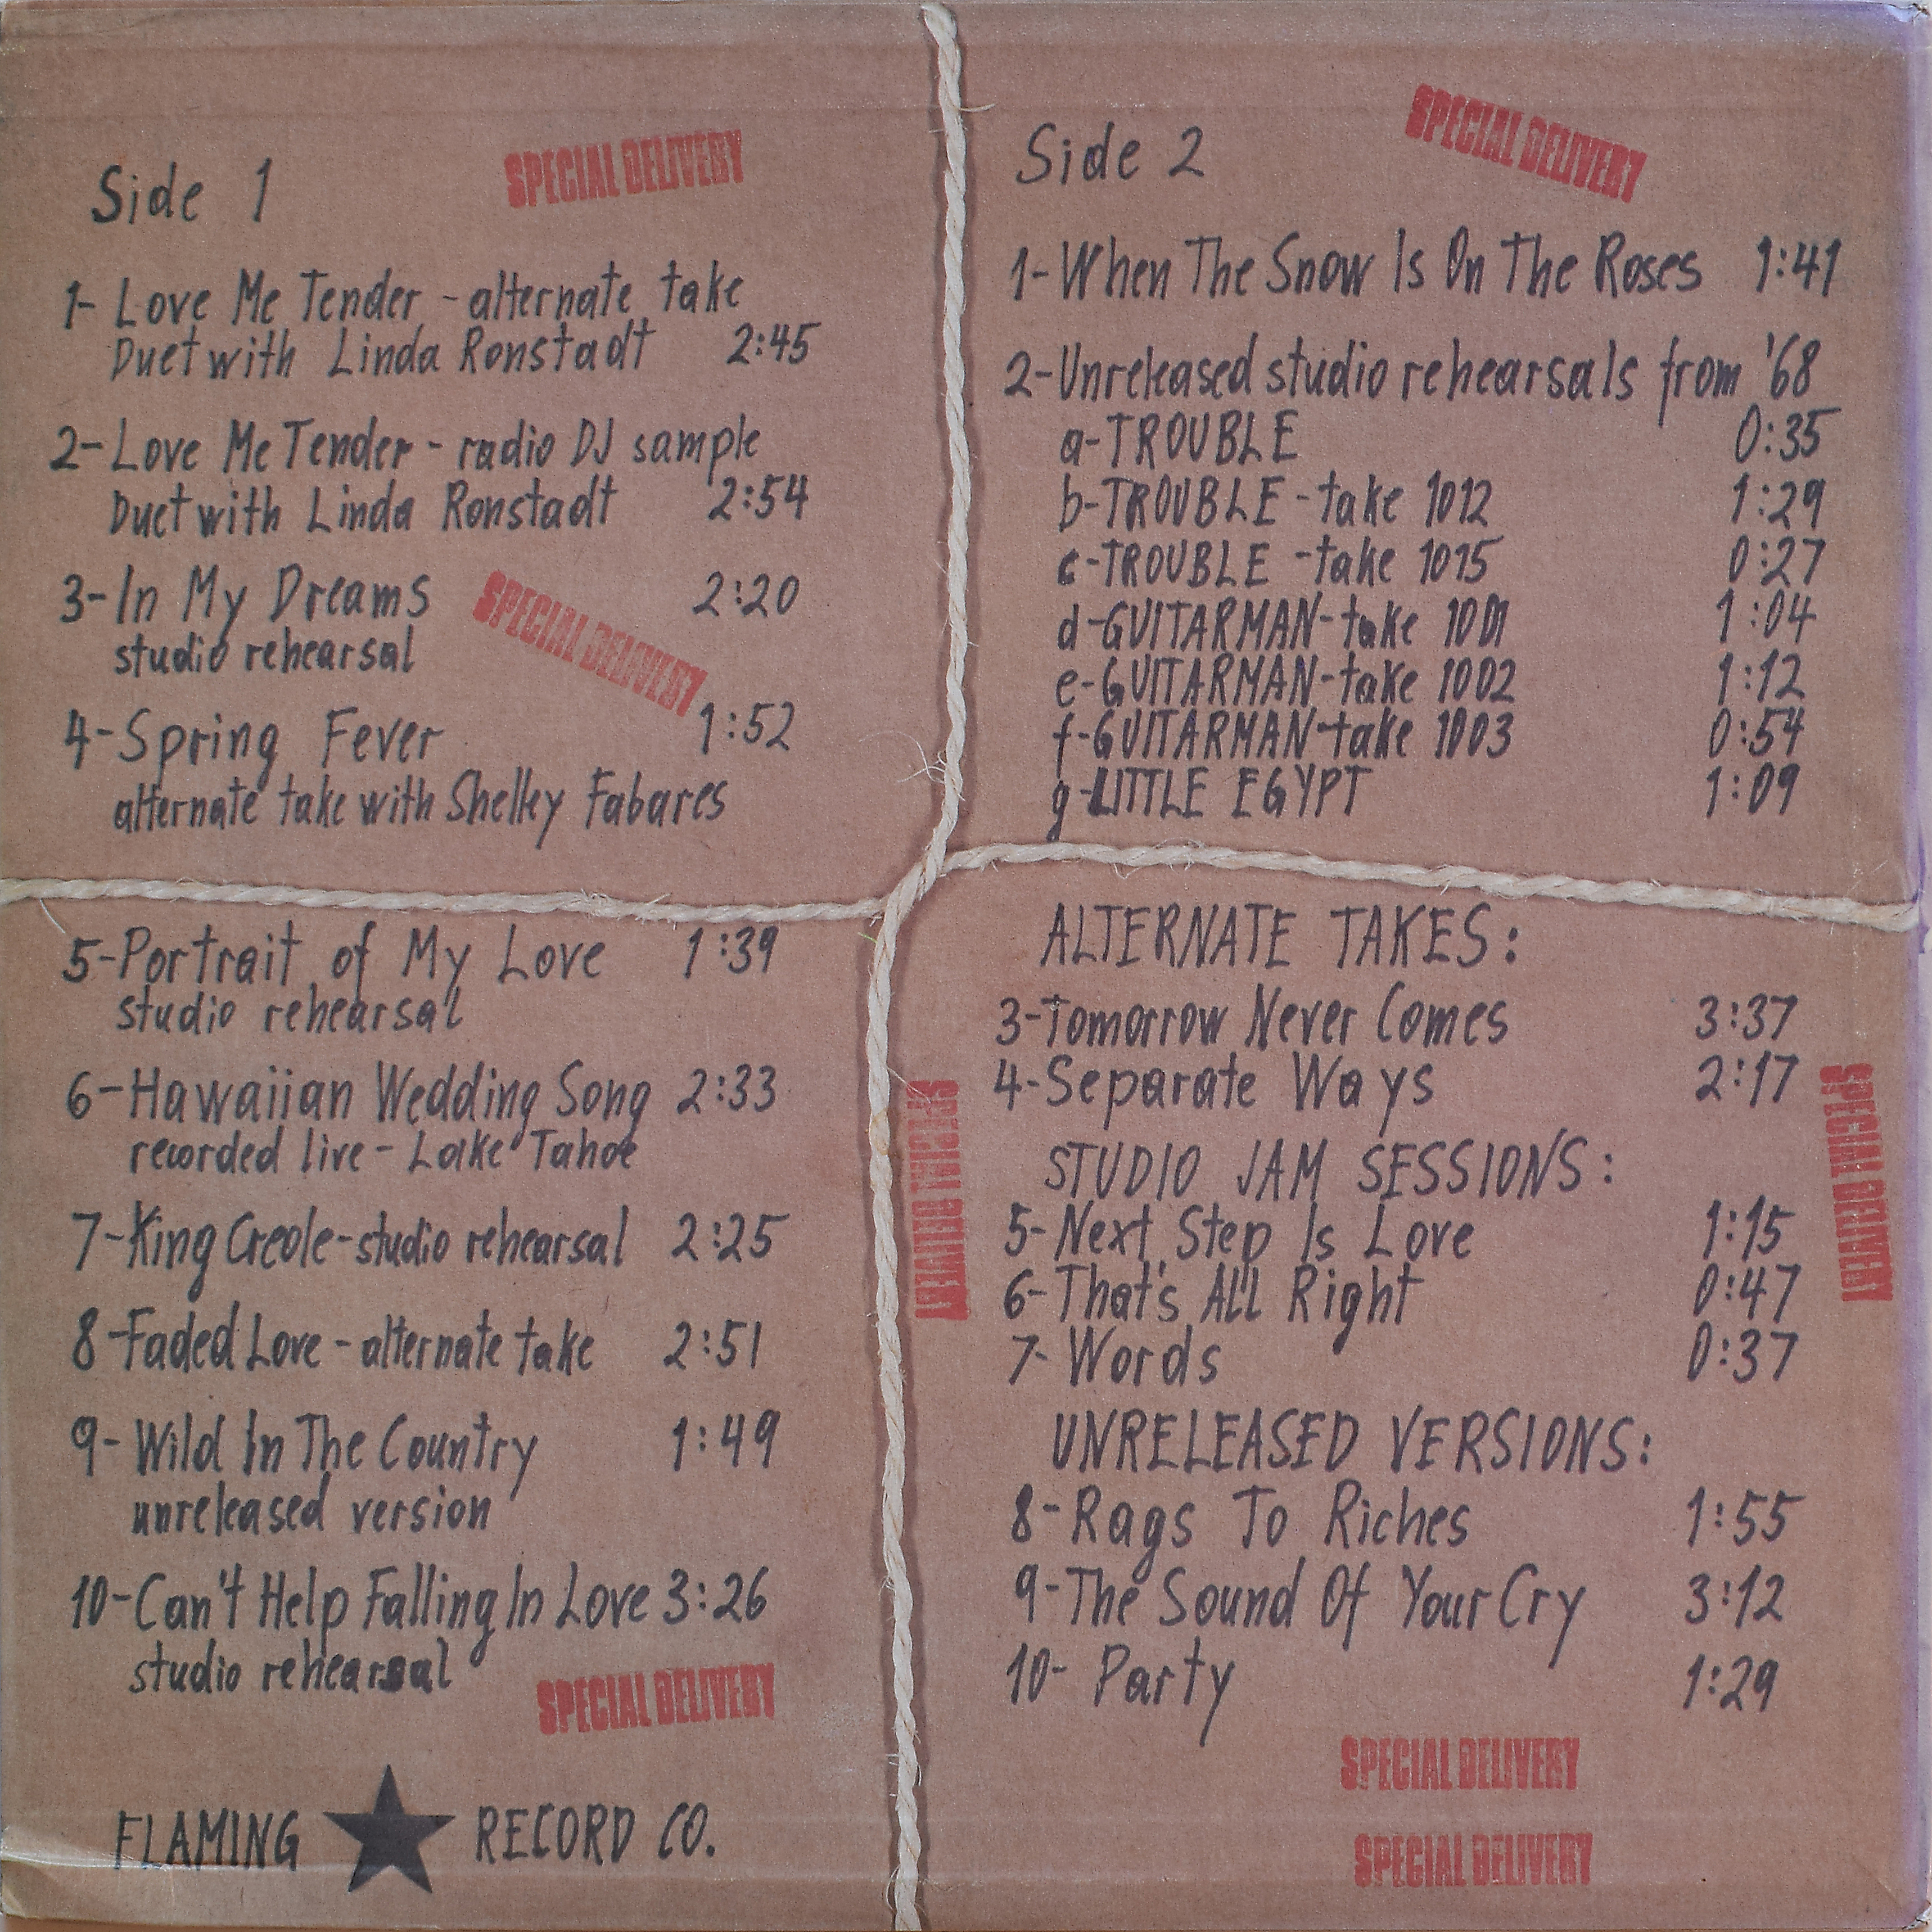 Side 1
SPECIAL DELIVERY
1- Love Me Tender - alternate take
Duet with Linda Ronstadt 2:45
2- Love Me Tender - radio DJ sample
Duet with Linda Ronstadt 2:54
3- In My Dreams 2:20
studio rehearsal
SPECIAL DELIVERY
4- Spring Fever 1:52
alternate take with Shelley Fabares
5- Portrait of My Love 1:39
studio rehearsal
6- Hawaiian Wedding Song 2:33
recorded live - Lake Tahoe
7- King Creole - studio rehearsal 2:25
8- Faded Love - alternate take 2:51
9- Wild In The Country 1:49
unreleased version
10- Can't Help Falling In Love 3:26
studio rehearsal
SPECIAL DELIVERY
FLAMING ★ RECORD CO.
Side 2
SPECIAL DELIVERY
1- When The Snow Is On The Roses 1:41
2- Unreleased studio rehearsals from '68
a- TROUBLE 0:35
b- TROUBLE - take 1012 1:29
c- TROUBLE - take 1015 0:27
d- GUITARMAN - take 1001 1:04
e- GUITARMAN - take 1002 1:12
f- GUITARMAN - take 1003 0:54
g- LITTLE EGYPT 1:09
ALTERNATE TAKES:
3- Tomorrow Never Comes 3:37
4- Separate Ways 2:17
SPECIAL DELIVERY
SPECIAL DELIVERY
STUDIO JAM SESSIONS:
5- Next Step Is Love 1:15
6- That's All Right 0:47
7- Words 0:37
UNRELEASED VERSIONS:
8- Rags To Riches 1:55
9- The Sound Of Your Cry 3:12
10- Party 1:29
SPECIAL DELIVERY
SPECIAL DELIVERY